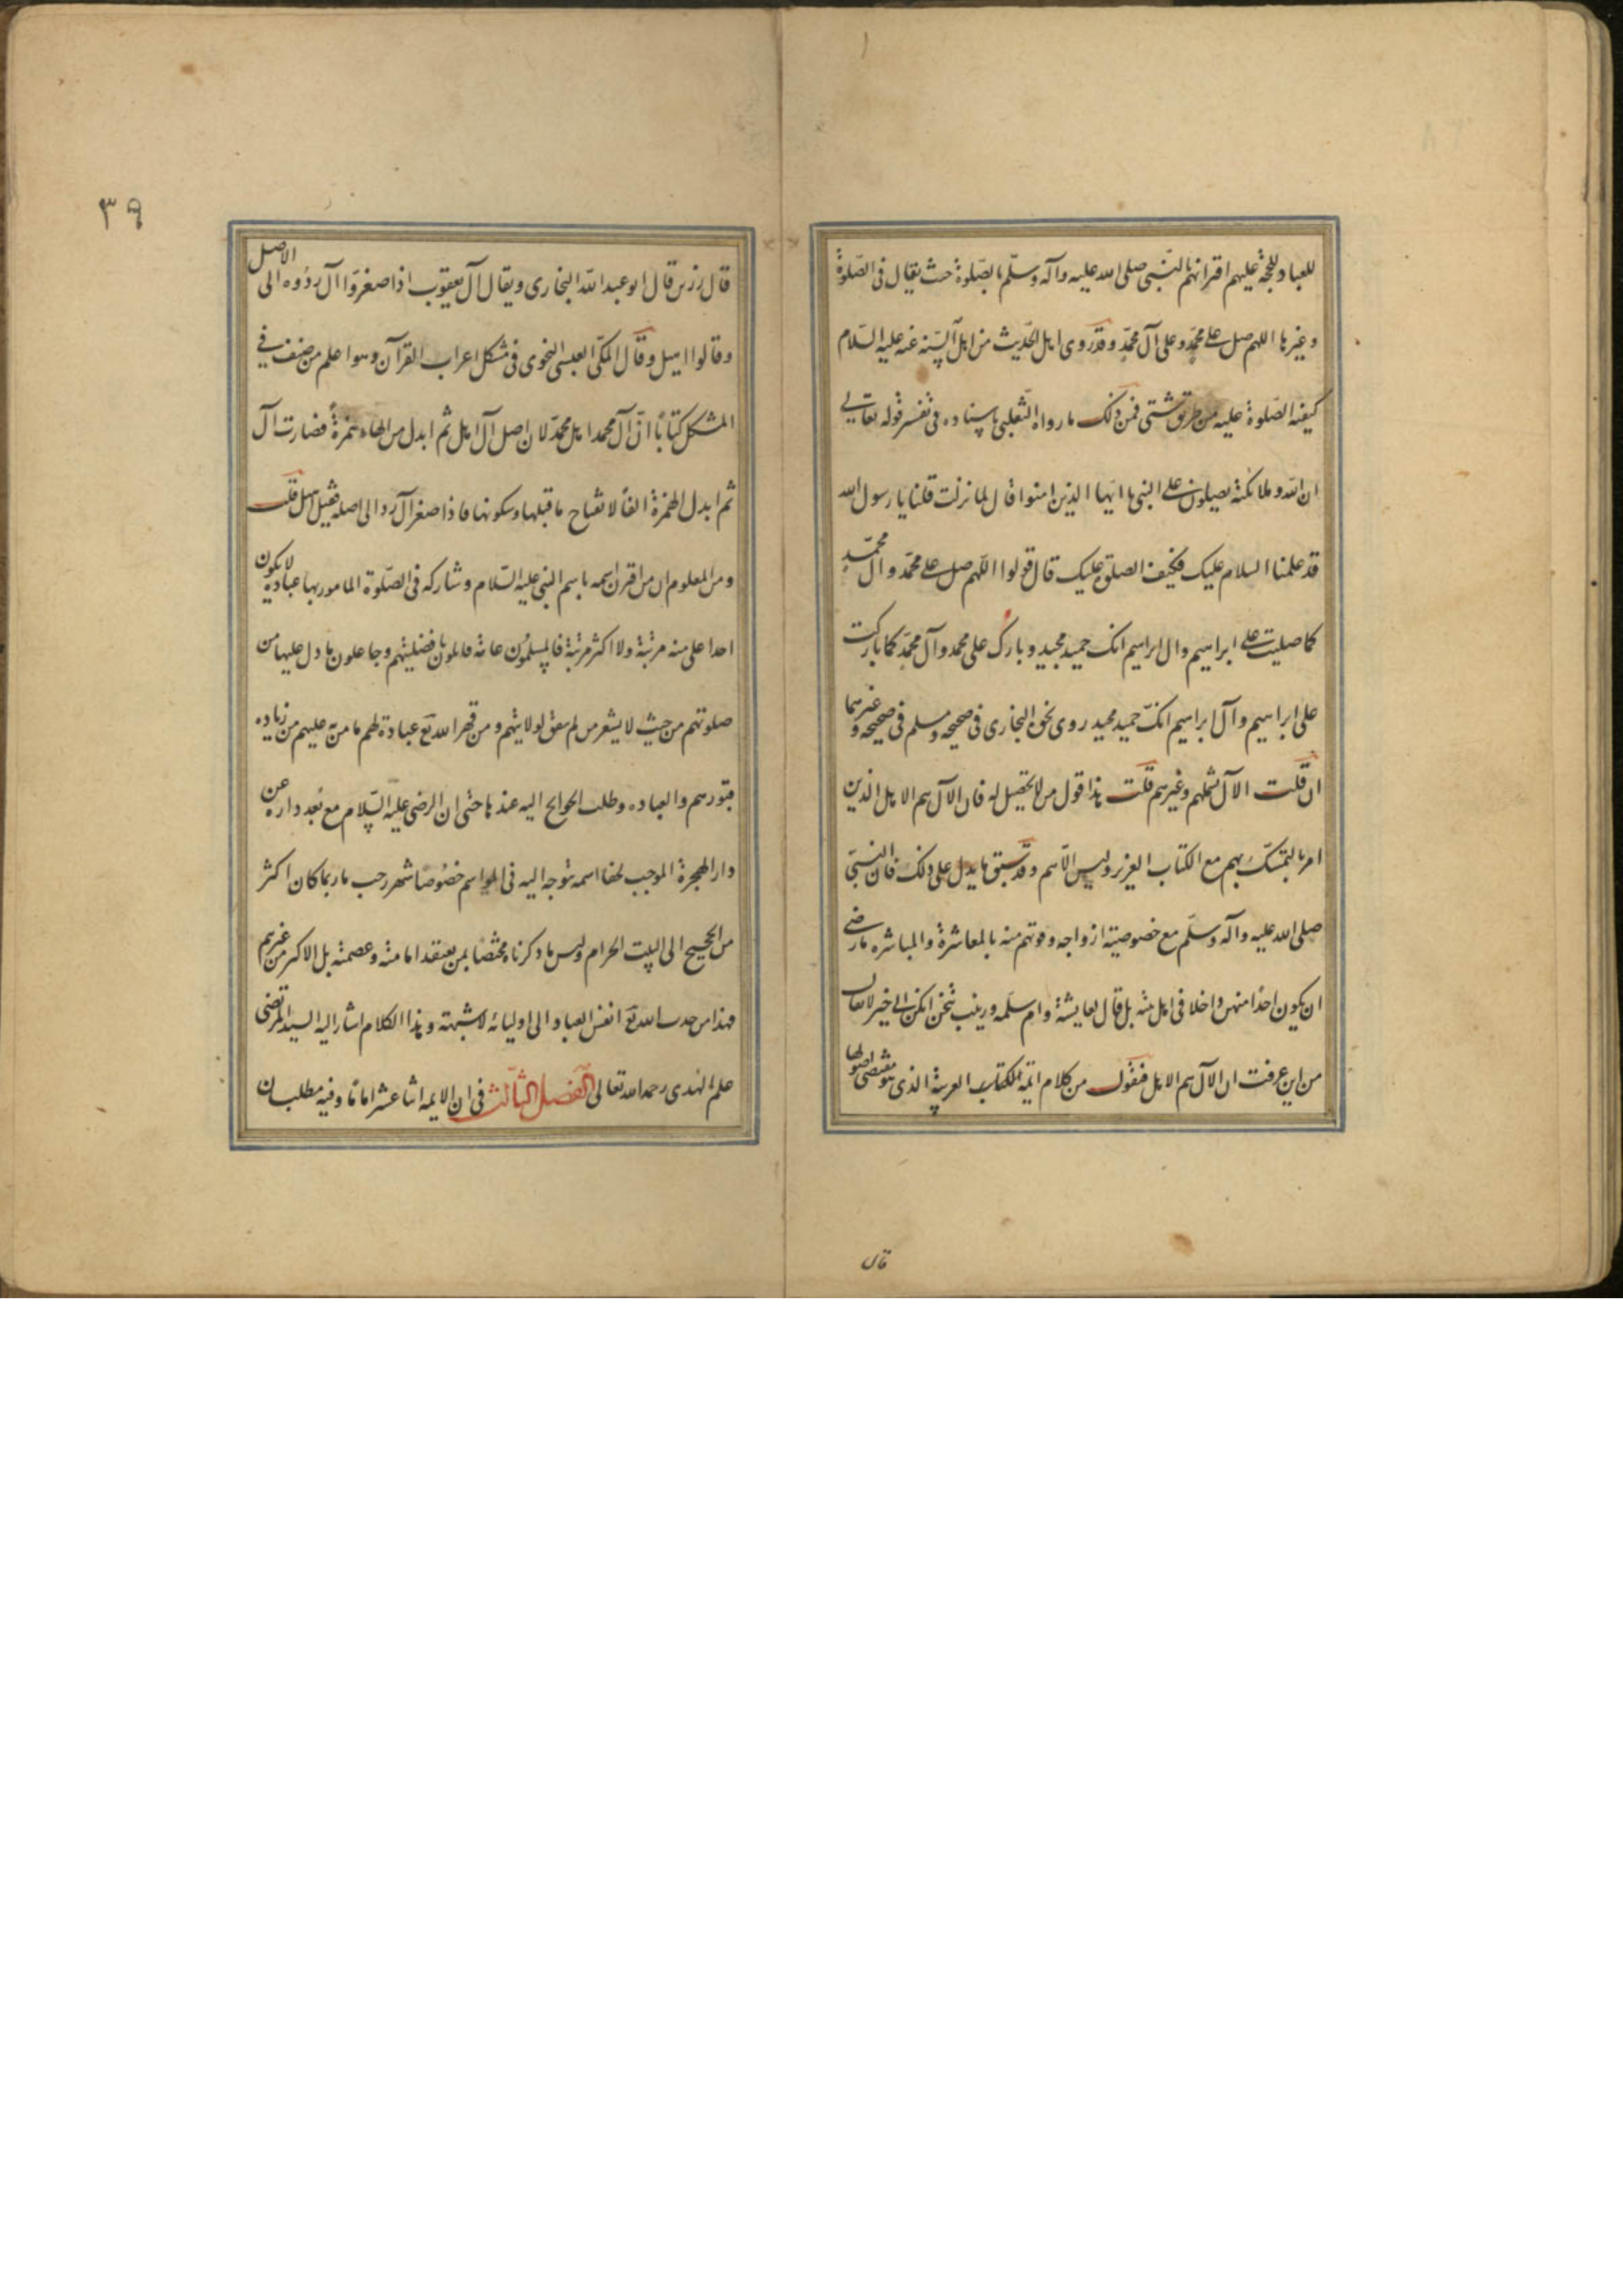 للعباد للحجة عليهم اقترانهم بالنبى صلى الله عليه وآله وسلّم بالصّلوة حيث يقال فى الصّلوة
وغيرها اللهم صل على محمّد وعلى آل محمّد وقد روى اهل الحديث من اهل السّنه عنه عليه السّلام
كيفيه الصّلوة عليه من طرق شتى فمن ذلك ما رواه الثّعلبى باسناده فى تفسير قوله تعالى
ان الله وملائكته يصلون على النبى يا ايها الذين امنوا قال لما نزلت قلنا يا رسول الله
قد علمنا السلام عليك فكيف الصلوة عليك قال قولوا اللّهم صل على محمّد وآل محمّد
كما صليت على ابراهيم وال ابراهيم انك حميد مجيد وبارك على محمد وآل محمّد كما باركت
على ابراهيم وآل ابراهيم انّك حميد مجيد روى نحوه البخارى فى صحيحه ومسلم فى صحيحه وغيرهما
ان قلت الآل تشملهم وغيرهم قلت هذا قول من لا تحصيل له فان الآل هم الاهل الذين
امرنا بالتمسّك بهم مع الكتاب العزيز وليس الّا هم وقد سبق ما يدل على ذلك فان النبىّ
صلى الله عليه وآله وسلّم مع خصوصية ازواجه وقوتهم منه بالمعاشرة والمباشره ما رضى
ان يكون احدًا منهن داخلا فى اهل بيته بل قال لعايشة وام سلمه وزينب تنحن انكن الى خير لا يقال
من اين عرفت ان الآل هم الاهل فنقول من كلام ائمة الكتاب العربية الذى هو مقتضى اصولها
قال
٣٩
قال رزين قال ابو عبد الله البخارى ويقال آل يعقوب اذا صغروا ال ردّوه الى الاصل
وقالوا اهيل وقال المكّى العبسى النحوى فى مشكل اعراب القرآن وهو اعلم من صنف فى
المشكل كتابًا انّ آل محمد اهل محمّد لان اصل آل اهل ثم ابدل من الهاء همزةً فصارت آل
ثم ابدل الهمزة الفًا لانفتاح ما قبلها وسكونها فاذا صغر آل رد الى اصله فقيل اهيل قلت
ومن المعلوم ان من اقترن اسمه باسم النبى عليه السّلام وشاركه فى الصّلوة المامور بها عباديه لا يكون
احدا على منه مرتبة ولا اكثر مرتبة فالمسلمون عامة قايلون بافضليتهم وجاعلون ما دل عليها من
صلوتهم من حيث لا يشعر من لم يعق لولايتهم ومن قهر الله تع عباده لهم ما من عليهم من زياده
قبورهم والعباده وطلب الحوايج اليه عندها حتى ان الرضى عليه السّلام مع بُعد داره عن
دار الهجرة الموجب لخفا اسمه يتوجه اليه فى المواسم خصوصًا شهر رجب ما ربما كان اكثر
من الحجيج الى البيت الحرام وليس ما ذكرناه مختصًا بمن يعتقد امامته وعصمته بل الاكثر من غيرهم
فهذا من جذب الله تع انفس العباد الى اوليائه لا شبهة وهذا الكلام اشار اليه السيد المرتضى
علم الهدى رحمه الله تعالى الفصل الثالث فى ان الايمه اثنا عشر امامًا وفيه مطلبان